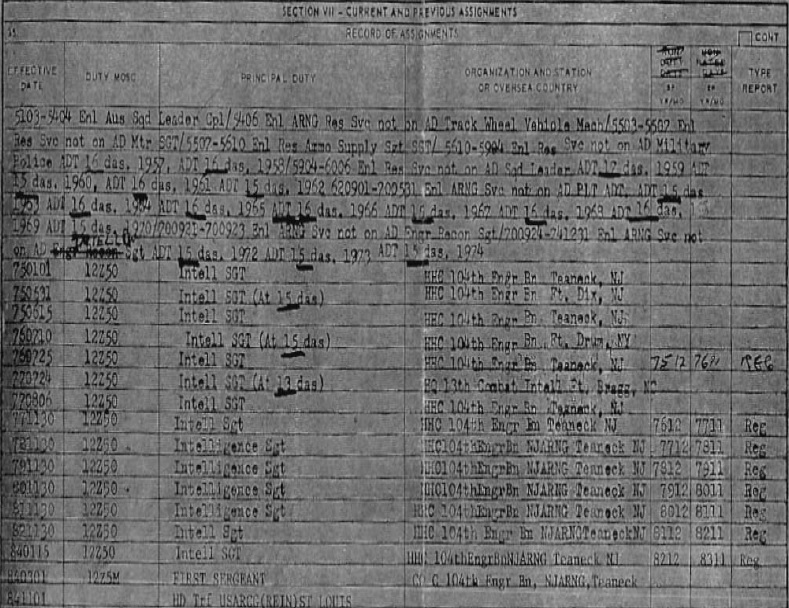 SECTION VII - CURRENT AND PREVIOUS ASSIGNMENTS
RECORD OF ASSIGNMENTS CONT
EFFECTIVE DATE DUTY MOSC PRINCIPAL DUTY ORGANIZATION AND STATION OR OVERSEA COUNTRY TYPE REPORT
5103-5404 Enl Aus Sqd Leader Cpl/5406 Enl ARNG Res Svc not on AD Track Wheel Vehicle Mech/5503-5502 Enl
Res Svc not on AD Mtr SGT/5507-5610 Enl Res Armo Supply Sgt SST/ 5610-5904 Enl Res Svc not on AD Military
Police ADT 16 das, 1957, ADT 16 das, 1958/5904-6006 Enl Res Svc not on AD Sqd Leader ADT 12 das, 1959 ADT
15 das, 1960, ADT 16 das, 1961 ADT 15 das, 1962 620901-200531 Enl ARNG Svc not on AD PLT ADT, ADT 15 das
ADT 16 das, 1964 ADT 16 das, 1965 ADT 16 das, 1966 ADT 16 das, 1967 ADT 16 das, 1968 ADT 16 das,
1969 ADT 15 das, 1970/200921-700923 Enl ARNG Svc not on AD Engr Recon Sgt/200924-241231 Enl ARNG Svc not
on AD Sgt ADT 15 das, 1972 ADT 15 das, 1973 ADT 15 das, 1974
750101 12Z50 Intell SGT HHC 104th Engr Bn Teaneck, NJ
750531 12Z50 Intell SGT (At 15 das) HHC 104th Engr Bn Ft. Dix, NJ
750615 12Z50 Intell SGT HHC 104th Engr Bn Teaneck, NJ
760710 12Z50 Intell SGT (At 15 das) HHC 104th Engr Bn, Ft. Drum, NY
760725 12Z50 Intell SGT HHC 104th Engr Bn Teaneck, NJ 7512 REG
770724 12Z50 Intell SGT (At 13 das) HQ 13th Combat Intell Ft. Bragg, NC
770806 12Z50 Intell SGT HHC 104th Engr Bn Teaneck, NJ
771130 12Z50 Intell Sgt HHC 104th Engr Bn Teaneck NJ 7612 7711 Reg
781130 12Z50 Intelligence Sgt HHC104thEngrBn NJARNG Teaneck NJ 7712 7811 Reg
791130 12Z50 Intelligence Sgt HHC104thEngrBn NJARNG Teaneck NJ 7812 7911 Reg
801130 12Z50 Intelligence Sgt HHC104thEngrBn NJARNG Teaneck NJ 7912 8011 Reg
811130 12Z50 Intelligence Sgt HHC 104thEngrBn NJARNG Teaneck NJ 8012 8111 Reg
821130 12Z50 Intell Sgt HHC 104th Engr Bn NJARNGTeaneckNJ 8112 8211 Reg
840115 12Z50 Intell SGT HHC 104thEngrBnNJARNG Teaneck NJ 8212 8311 Reg
840301 12Z5M FIRST SERGEANT CO C 104th Engr Bn, NJARNG,Teaneck
841101 HD Trf USARCG(REIN)ST LOUIS